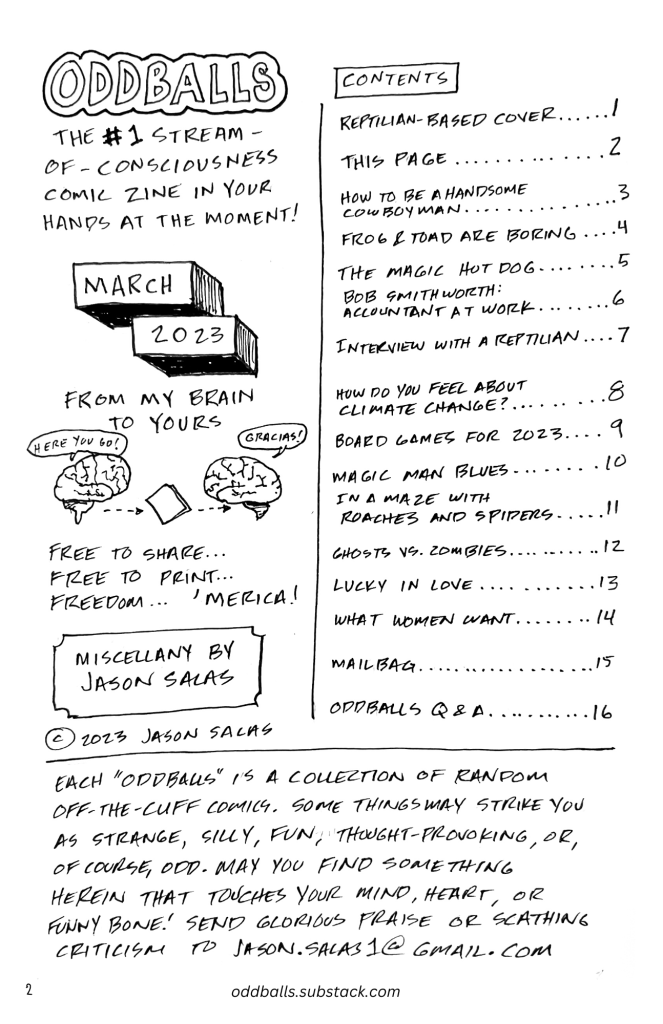 ODDBALLS
THE #1 STREAM-
OF-CONSCIOUSNESS
COMIC ZINE IN YOUR
HANDS AT THE MOMENT!
MARCH
2023
FROM MY BRAIN
TO YOURS
HERE YOU GO!
GRACIAS!
FREE TO SHARE...
FREE TO PRINT...
FREEDOM... 'MERICA!
MISCELLANY BY
JASON SALAS
© 2023 JASON SALAS
CONTENTS
REPTILIAN-BASED COVER......1
THIS PAGE ..............2
HOW TO BE A HANDSOME
COWBOYMAN................3
FROG & TOAD ARE BORING ....4
THE MAGIC HOT DOG........5
BOB SMITHWORTH:
ACCOUNTANT AT WORK........6
INTERVIEW WITH A REPTILIAN....7
HOW DO YOU FEEL ABOUT
CLIMATE CHANGE?..........8
BOARD GAMES FOR 2023....9
MAGIC MAN BLUES.........10
IN A MAZE WITH
ROACHES AND SPIDERS.....11
GHOSTS VS. ZOMBIES..........12
LUCKY IN LOVE ..........13
WHAT WOMEN WANT........14
MAILBAG...................15
ODDBALLS Q & A...........16
EACH "ODDBALLS" IS A COLLECTION OF RANDOM
OFF-THE-CUFF COMICS. SOME THINGS MAY STRIKE YOU
AS STRANGE, SILLY, FUN, THOUGHT-PROVOKING, OR,
OF COURSE, ODD. MAY YOU FIND SOMETHING
HEREIN THAT TOUCHES YOUR MIND, HEART, OR
FUNNY BONE! SEND GLORIOUS PRAISE OR SCATHING
CRITICISM TO JASON.SALAS1@GMAIL.COM
2
oddballs.substack.com